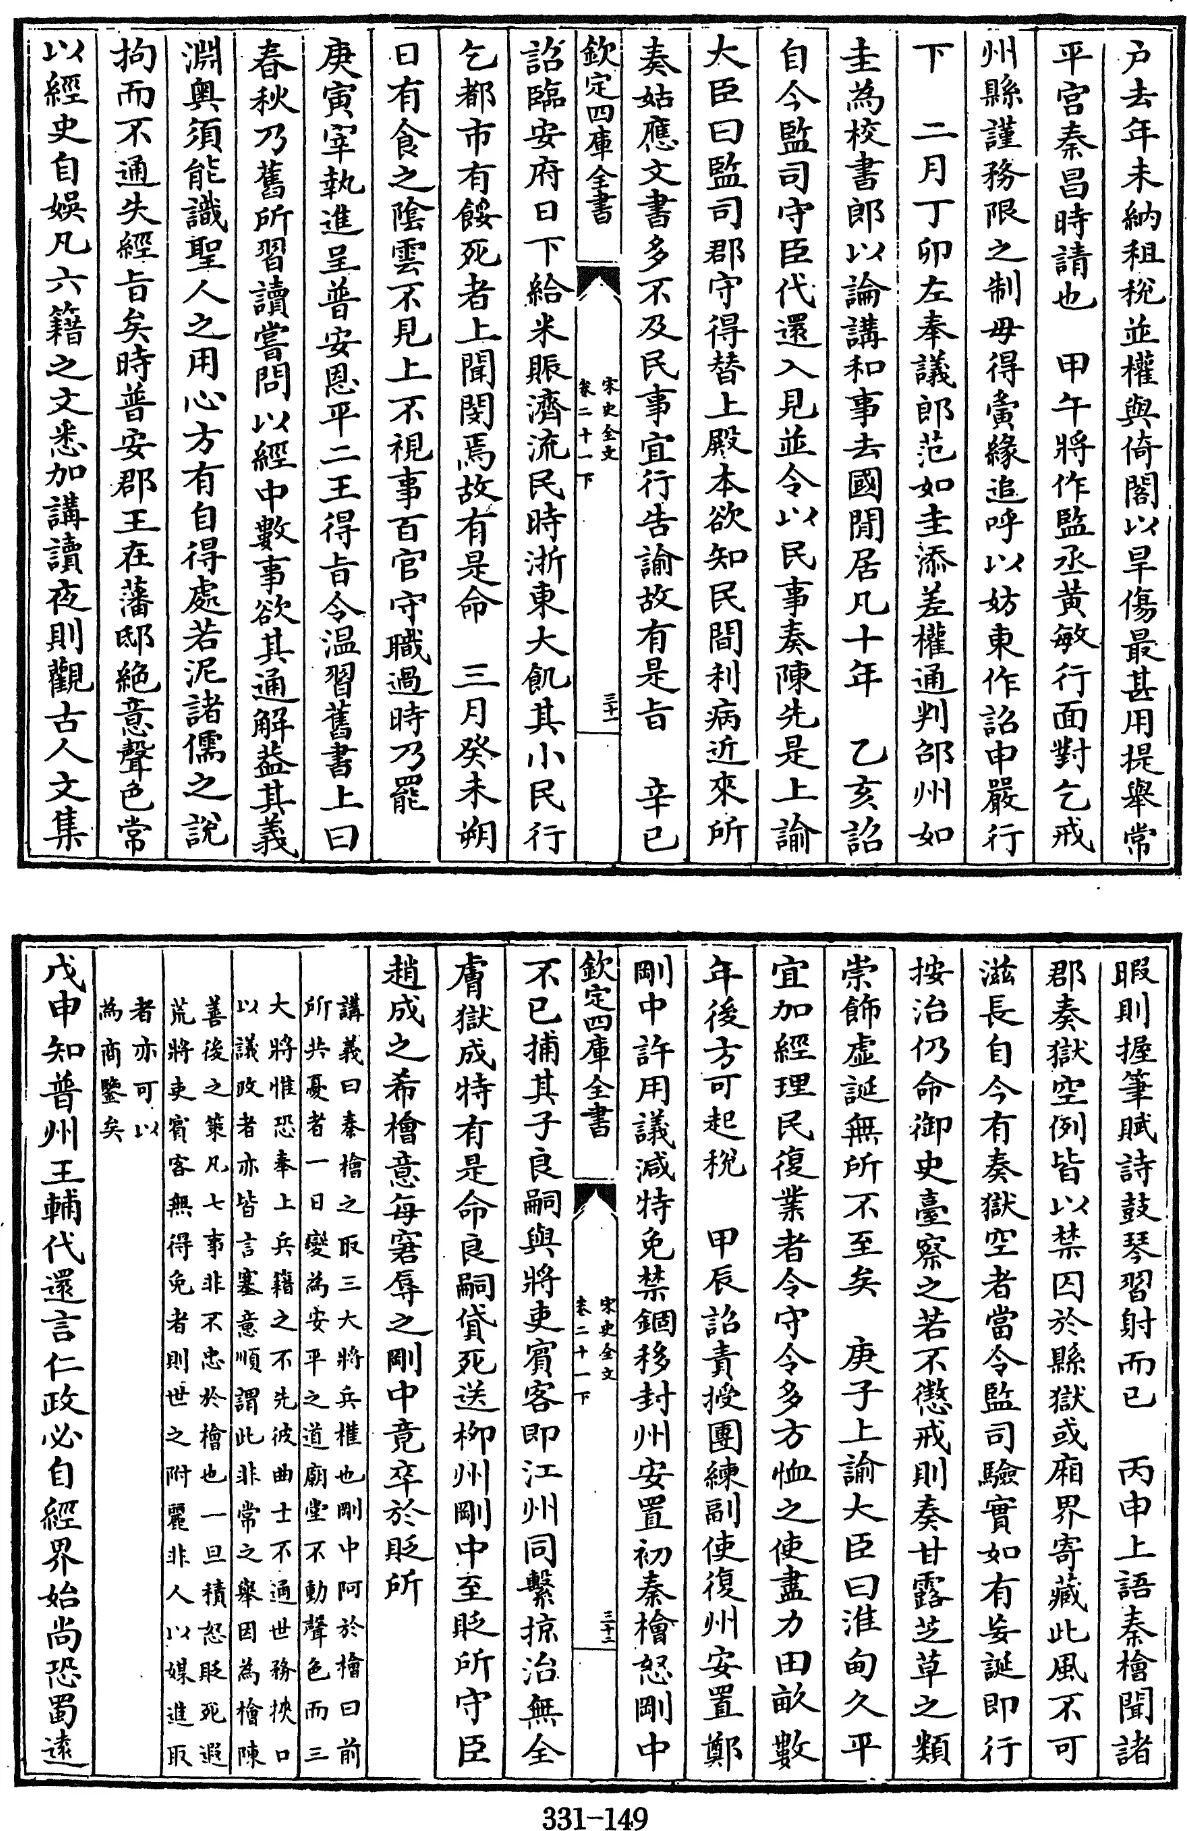 户去年未納租稅並權與倚閣以旱傷最甚用提舉常
平官秦昌時請也　甲午將作監丞黃敏行面對乞戒
州縣謹務限之制毋得夤緣追呼以妨東作詔申嚴行
下　二月丁卯左奉議郎范如圭添差權通判邵州如
圭為校書郎以論講和事去國閒居凡十年　乙亥詔
自今監司守臣代還入見並令以民事奏陳先是上諭
大臣曰監司郡守得替上殿本欲知民間利病近來所
奏姑應文書多不及民事宜行告諭故有是旨　辛已
欽定四庫全書
宋史全文
卷二十一下
三十一
詔臨安府日下給米賑濟流民時浙東大飢其小民行
乞都市有餒死者上聞閔焉故有是命　三月癸未朔
日有食之陰雲不見上不視事百官守職過時乃罷
庚寅宰執進呈普安恩平二王得旨令温習舊書上曰
春秋乃舊所習讀嘗問以經中數事欲其通解葢其義
淵奧須能識聖人之用心方有自得處若泥諸儒之說
拘而不通失經旨矣時普安郡王在藩邸絶意聲色常
以經史自娛凡六籍之文悉加講讀夜則觀古人文集
暇則握筆賦詩鼓琴習射而已　丙申上語秦檜聞諸
郡奏獄空例皆以禁囚於縣獄或廂界寄藏此風不可
滋長自今有奏獄空者當令監司驗實如有妄誕即行
按治仍命御史臺察之若不懲戒則奏甘露芝草之類
崇飾虚誕無所不至矣　庚子上諭大臣曰淮甸久平
宜加經理民復業者令守令多方恤之使盡力田畝數
年後方可起稅　甲辰詔責授團練副使復州安置鄭
剛中許用議減特免禁錮移封州安置初秦檜怒剛中
欽定四庫全書
宋史全文
卷二十一下
三十二
不已捕其子良嗣與將吏賓客即江州同繫掠治無全
膚獄成特有是命良嗣貸死送柳州剛中至貶所守臣
趙成之希檜意每窘辱之剛中竟卒於貶所
講義曰秦檜之取三大將兵權也剛中阿於檜曰前
所共憂者一日變為安平之道廟堂不動聲色而三
大將惟恐奉上兵籍之不先彼曲士不通世務挾口
以議政者亦皆言塞意順謂此非常之舉因為檜陳
善後之策凡七事非不忠於檜也一旦積怒貶死遐
荒將吏賓客無得免者則世之附麗非人以媒進取
者亦可以
為商鑒矣
戊申知普州王輔代還言仁政必自經界始尚恐蜀遠
331-149